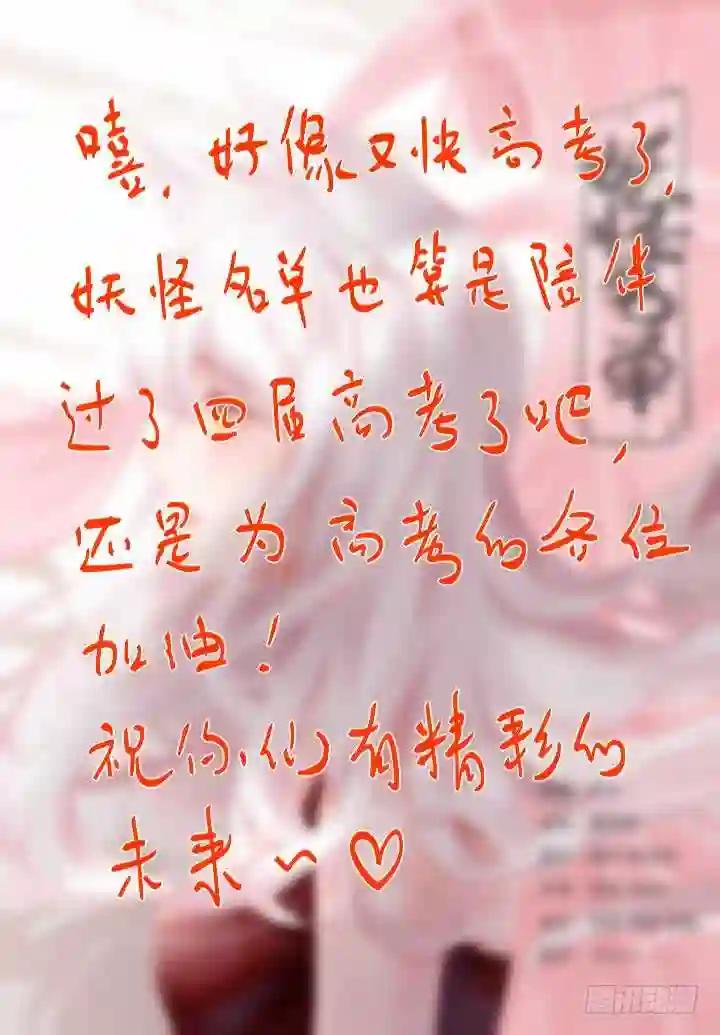 嘻，好像又快高考了，
妖怪名单也算是陪伴
过了四届高考了吧，
还是为高考的各位
加油！
祝你们有精彩的
未来~♡
腾讯动漫